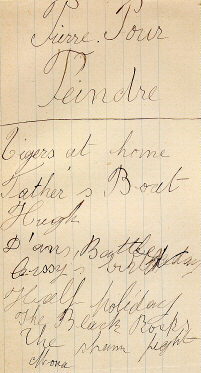 Pierre. Pour
Peindre
Tigers at home
Father's Boat
Hugh
D'ans, Battle
Cissy's birthday
Half holiday
The Black Rocks
The sham fight
Mona